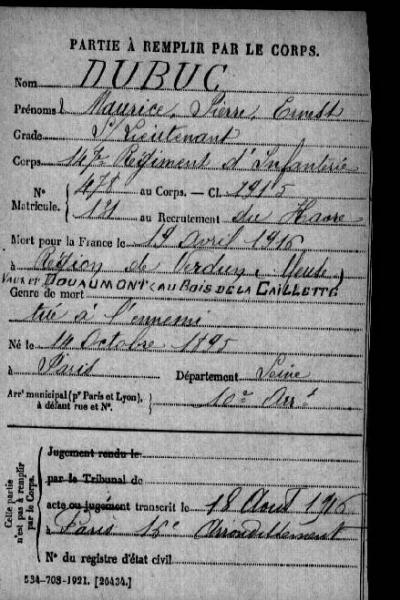 PARTIE À REMPLIR PAR LE CORPS.
Nom DUBUC
Prénoms Maurice, Pierre, Ernest
Grade S/ Lieutenant
Corps 147e Régiment d'Infanterie
N° 478 au Corps. — Cl. 1915
Matricule. 131 au Recrutement du Havre
Mort pour la France le 19 Avril 1916
à Région de Verdun, (Meuse)
VAUX ET DOUAUMONT (AU BOIS DE LA CAILLETTE
Genre de mort
tué à l'ennemi
Né le 14 Octobre 1895
à Paris Département Seine
Arrt municipal (pr Paris et Lyon), à défaut rue et N°. 10e Arrt
Cette partie n'est pas à remplir par le Corps.
Jugement rendu le
par le Tribunal de
acte ou jugement transcrit le 18 Août 1916
à Paris 16e Arrondissement
N° du registre d'état civil
534-708-1921. [26434.]